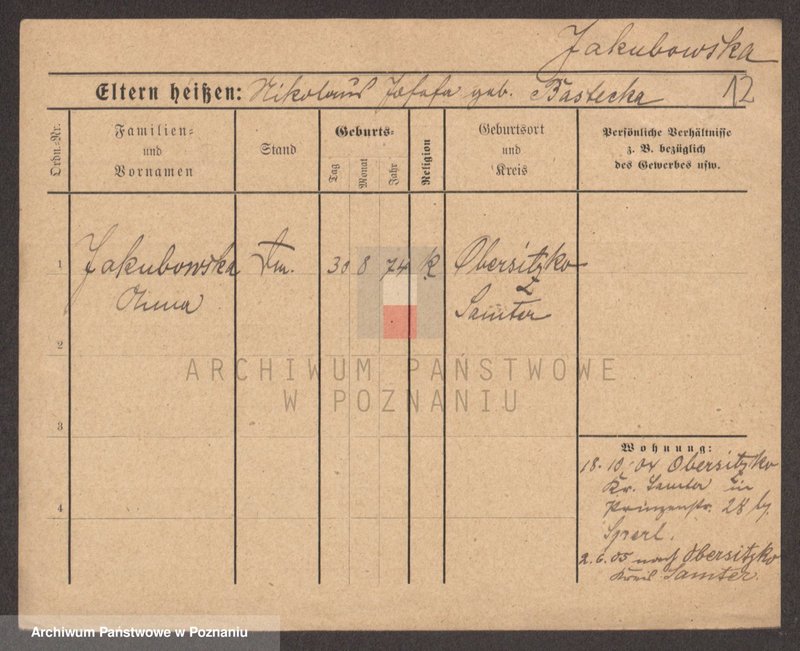 Jakubowska
Eltern heißen: Nikolaus Josefa geb. Bastecka 12
Ordn.-Nr.
Familien- und Vornamen
Stand
Geburts-
Tag
Monat
Jahr
Religion
Geburtsort und Kreis
Persönliche Verhältnisse
z. B. bezüglich
des Gewerbes usw.
1 Jakubowska 30 8 74 k Obersitzko
Anna Samter
2
ARCHIWUM PAŃSTWOWE
W POZNANIU
3
4
Wohnung:
18.10.04 Obersitzko
Kr. Samter in
Prinzenstr. 28 by
Sperl.
2.6.05 nach Obersitzko
Kreis Samter.
Archiwum Państwowe w Poznaniu